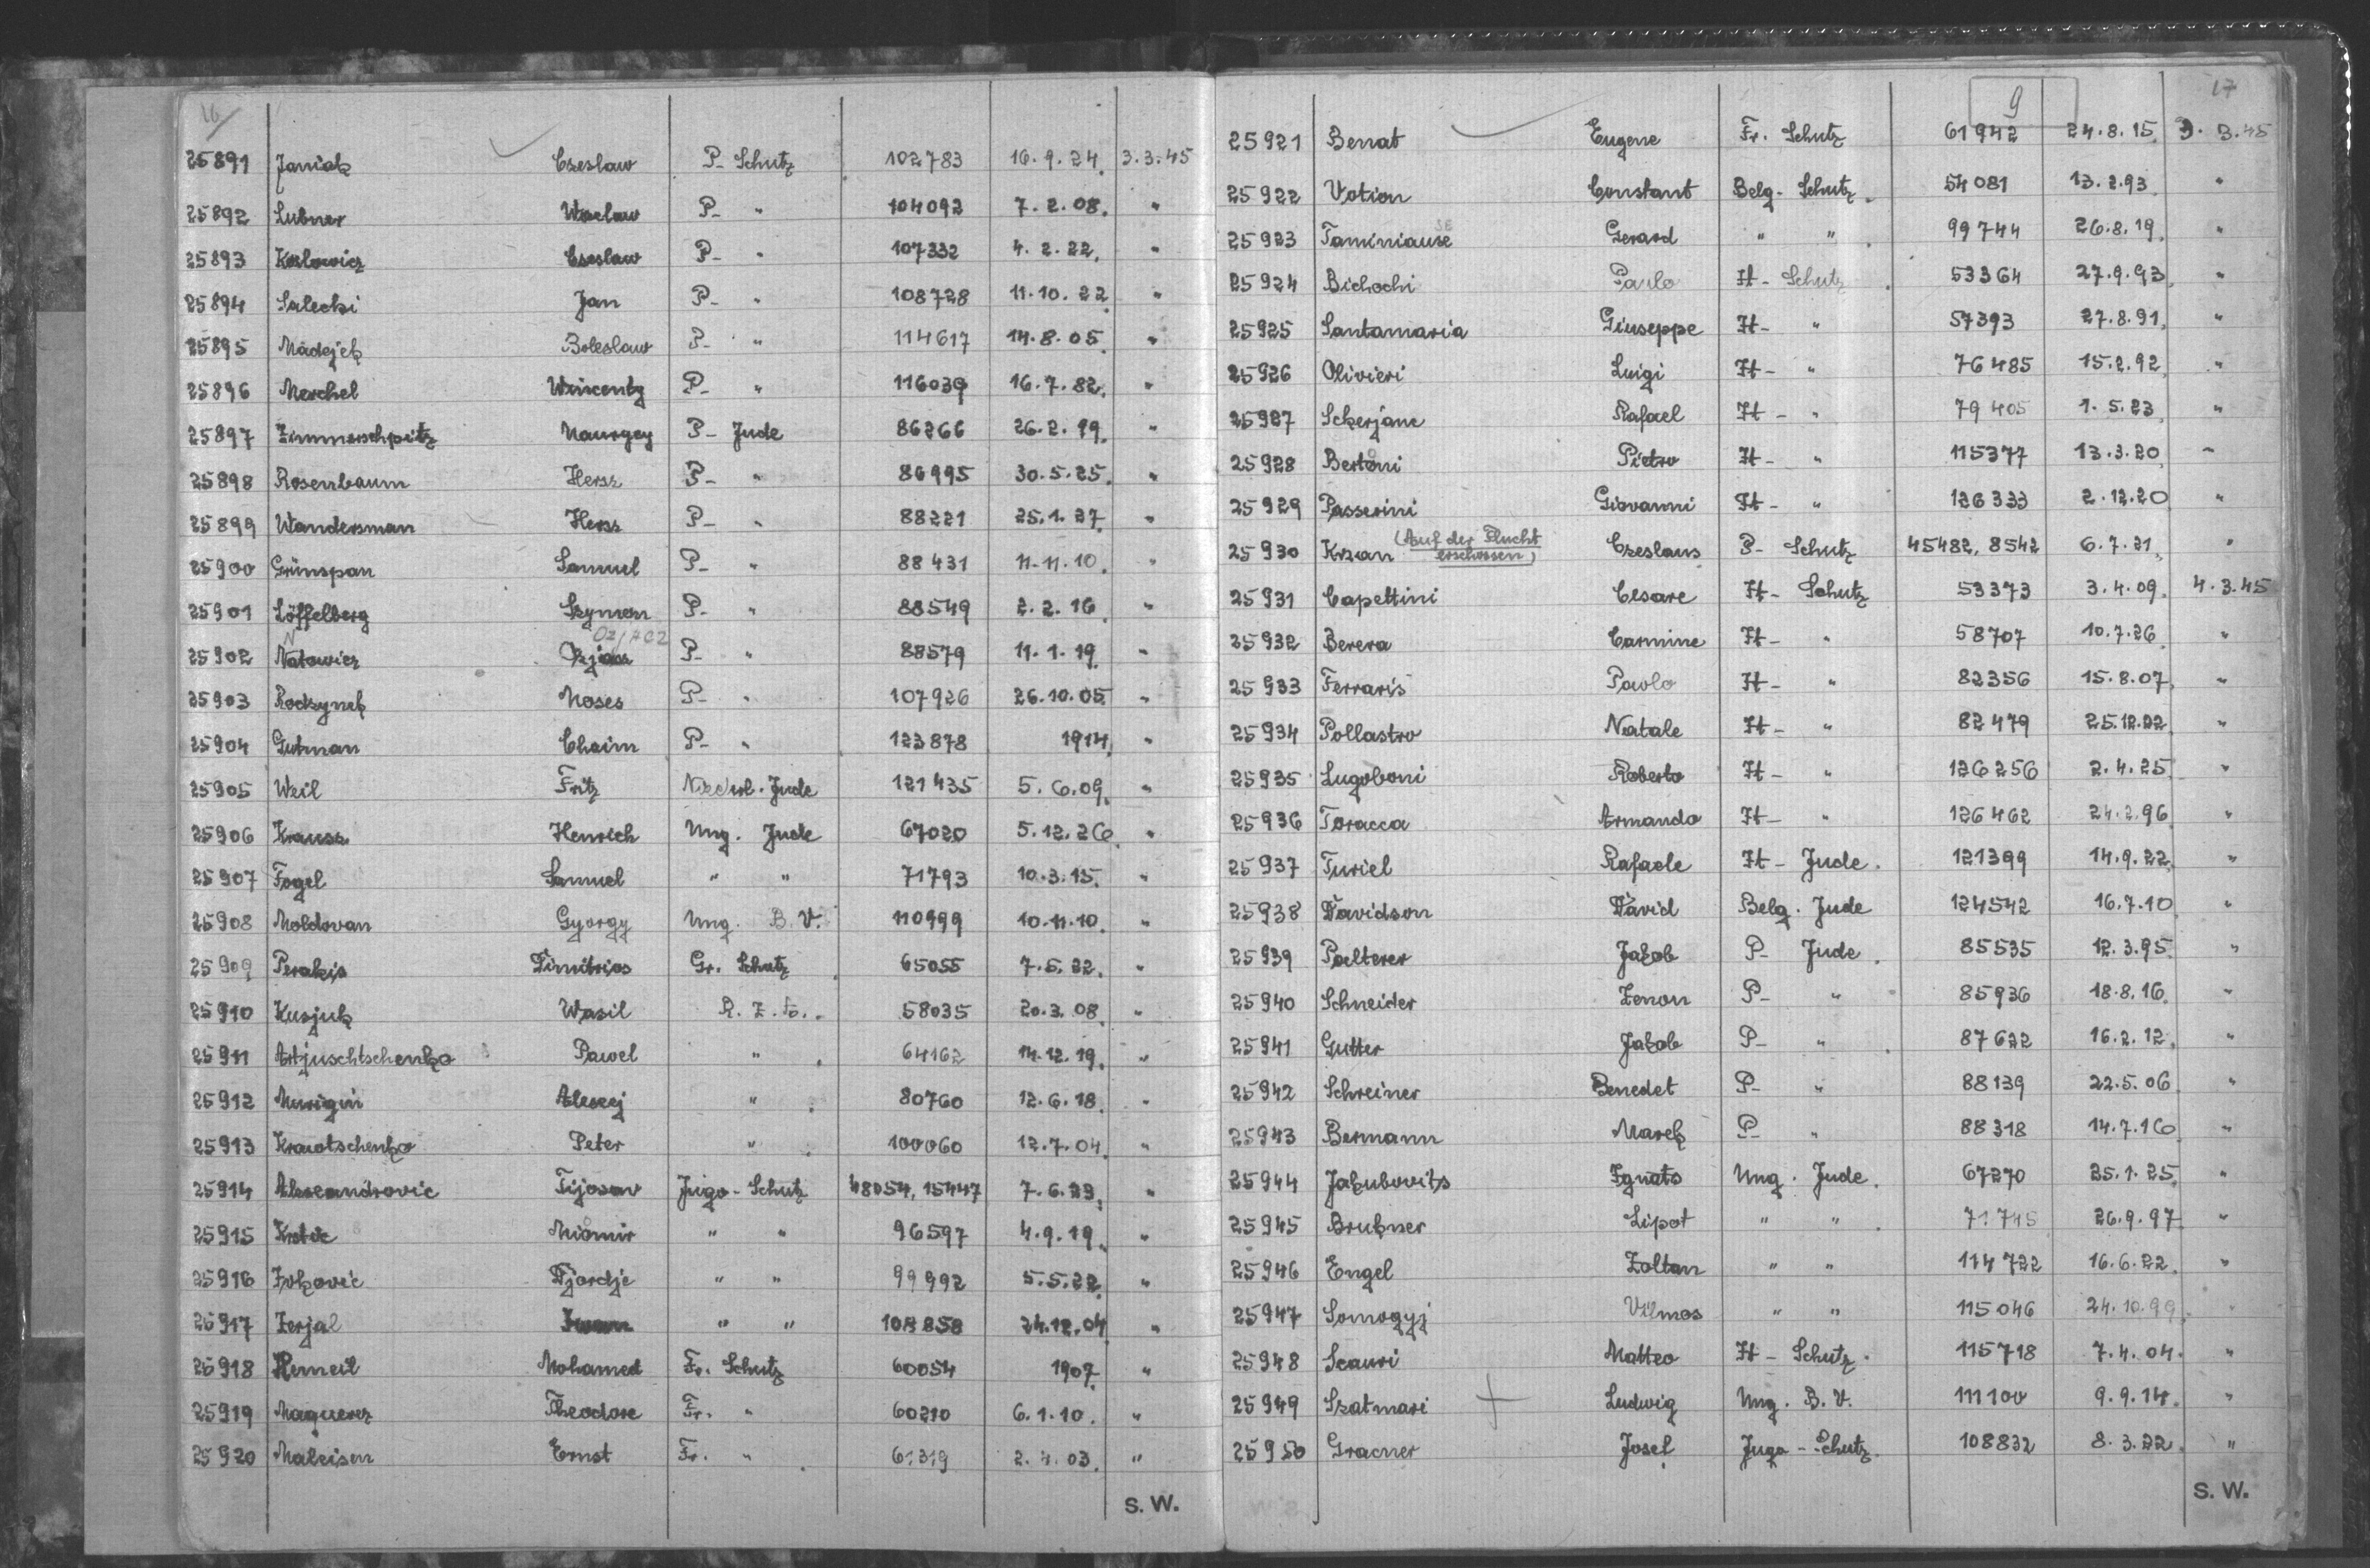 16/
25891 Janiak Czeslaw P- Schutz 102783 16.9.24. 3.3.45
25892 Lubner Waclaw P- " 104092 7.2.08. "
25893 Karlowicz Czeslaw P- " 107332 4.2.22. "
25894 Salecki Jan P- " 108728 11.10.22 "
25895 Madejek Boleslaw P- " 114617 14.8.05. "
25896 Merchel Wincenty P- " 116039 16.7.82. "
25897 Zimmerschpitz Naurgey P- Jude 86266 26.2.19. "
25898 Rosenbaum Hersz P- " 86995 30.5.25. "
25899 Wandersman Hersz P- " 88221 25.1.27. "
25900 Grünspan Samuel P- " 88431 11.11.10. "
25901 Löffelberg Szymon P- " 88549 2.2.16. "
25902 Natowicz P- " 88579 11.1.19. "
25903 Rodzynek Moses P- " 107926 26.10.05. "
25904 Gutman Chaim P- " 123878 1914. "
25905 Weil Fritz Niederl. Jude 121435 5.6.09. "
25906 Krausz Henrich Ung. Jude 67020 5.12.26. "
25907 Fogel Samuel " " 71793 10.3.15. "
25908 Moldovan Gyorgy Ung. B.V. 110999 10.11.10. "
25909 Perakis Dimitrios Gr. Schutz 65055 7.5.22. "
25910 Kusjuk Wasil R.Z.A. 58035 20.3.08. "
25911 Artjuschtschenko Pawel " 64162 14.12.19. "
25912 Murigin Alexej " 80760 12.6.18. "
25913 Krawtschenko Peter " 100060 12.7.04. "
25914 Alexandrovic Tijosav Jugo-Schutz 48054, 15447 7.6.23. "
25915 Krstic Miomir " " 96597 4.9.19. "
25916 Zivkovic Djordje " " 99992 5.5.22. "
25917 Zerjal Ivan " " 108858 24.12.04 "
25918 Remeil Mohamed Fr. Schutz 60054 1907. "
25919 Maquerez Theodore Fr. " 60210 6.1.10. "
25920 Maleisen Ernst Fr. " 61319 2.4.03. "
S. W.
9 17
25921 Berrat Eugene Fr. Schutz 61942 24.8.15. 3.3.45
25922 Votion Constant Belg. Schutz. 54081 13.2.93. "
25923 Taminiause Gerard " " 99744 26.8.19. "
25924 Bichochi Paolo It- Schutz 53364 27.9.93. "
25925 Santamaria Giuseppe It- " 57393 27.8.91. "
25926 Olivieri Luigi It- " 76485 15.2.92. "
25927 Sckerjanc Rafael It- " 79405 1.5.23. "
25928 Bertoni Pietro It- " 115377 13.3.20. "
25929 Passerini Giovanni It- " 126333 2.12.20 "
25930 Krzan (Auf der Flucht erschossen) Czeslaus P- Schutz 45482, 8542 6.7.21. "
25931 Capettini Cesare It- Schutz 53373 3.4.09. 4.3.45
25932 Berera Carmine It- " 58707 10.7.26. "
25933 Ferraris Paolo It- " 82356 15.8.07. "
25934 Pollastro Natale It- " 82479 25.12.22. "
25935 Lugoboni Roberto It- " 126256 2.4.25. "
25936 Toracca Armando It- " 126462 24.2.96. "
25937 Turiel Rafaele It- Jude. 121399 14.9.22. "
25938 Davidson David Belg. Jude 124542 16.7.10. "
25939 Pelterer Jakob P- Jude. 85535 12.3.95. "
25940 Schneider Zenon P- " 85936 18.8.16. "
25941 Gutter Jakob P- " 87622 16.2.12. "
25942 Schreiner Benedet P- " 88139 22.5.06. "
25943 Bermann Marek P- " 88318 14.7.16. "
25944 Jakubovits Ignats Ung. Jude. 67270 25.1.25. "
25945 Brukner Lipot " " 71745 26.9.97. "
25946 Engel Zoltan " " 114722 16.6.22. "
25947 Somogyj Vilmos " " 115046 24.10.99. "
25948 Scauri Matteo It- Schutz. 115718 7.4.04. "
25949 Szatmari + Ludwig Ung. B.V. 111100 9.9.14. "
25950 Gracner Josef Jugo-Schutz. 108832 8.3.22. "
S. W.